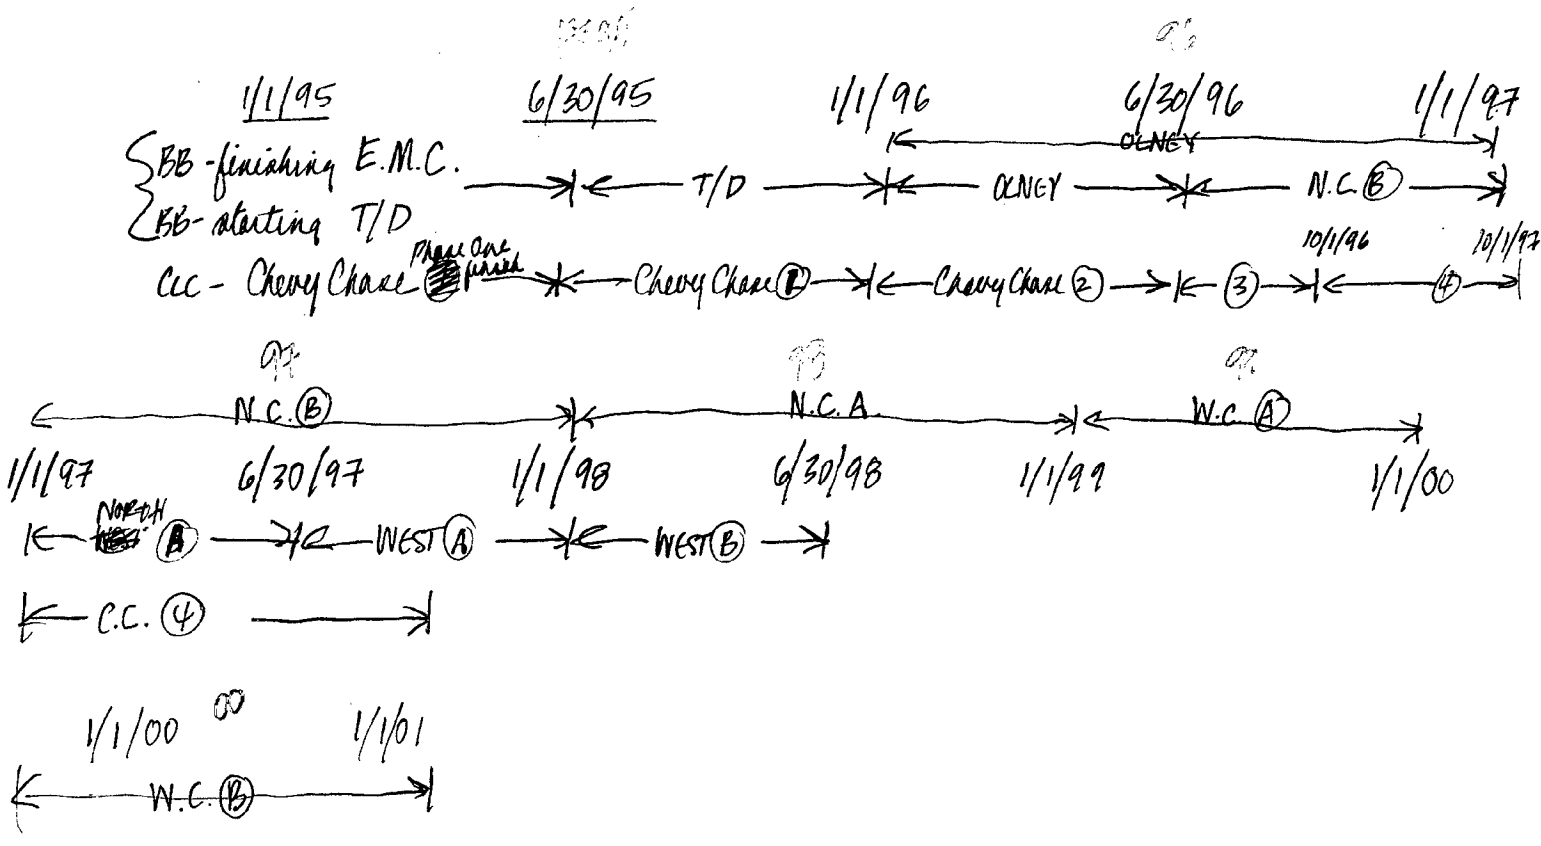 96
1/1/95 6/30/95 1/1/96 6/30/96 1/1/97
OLNEY
BB - finishing E.M.C.
T/D OLNEY N.C. B
BB - starting T/D
10/1/96 10/1/97
Phase One
CCC - Chevy Chase Chevy Chase 1 Chevy Chase 2 3 4
97 98 99
N.C. B N.C. A. W.C. A
1/1/97 6/30/97 1/1/98 6/30/98 1/1/99 1/1/00
NORTH
A WEST A WEST B
C.C. 4
00
1/1/00 1/1/01
W.C. B